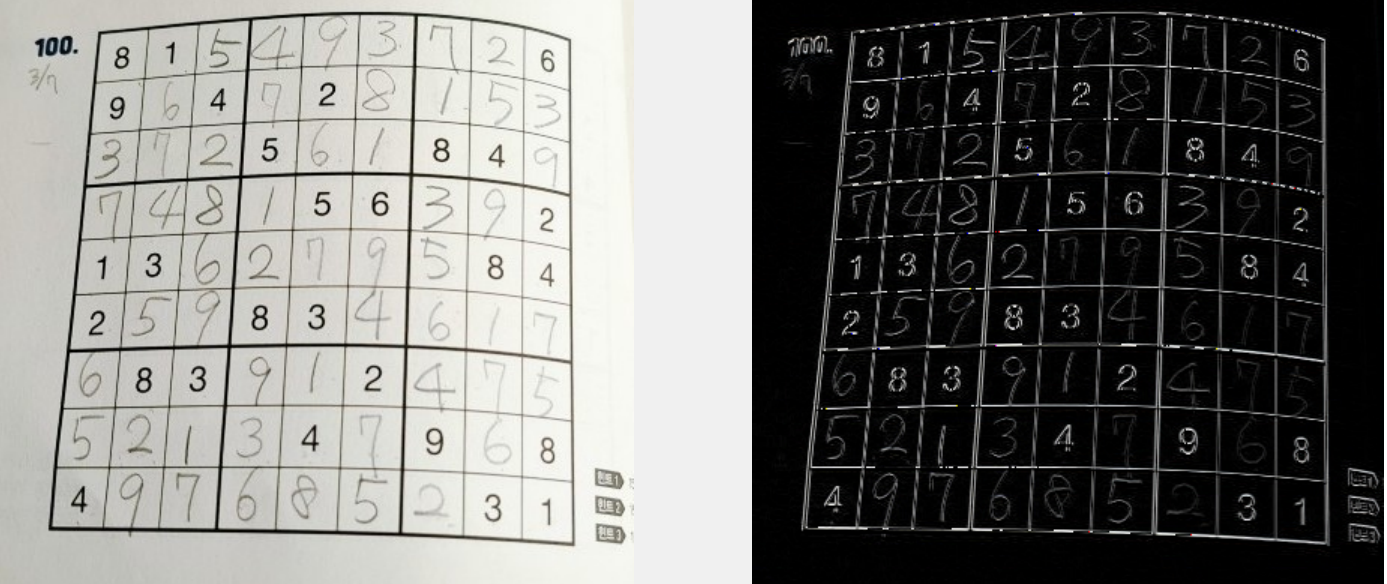 100.
3/7
8 1 5 4 9 3 7 2 6
9 6 4 7 2 8 1 5 3
3 7 2 5 6 1 8 4 9
7 4 8 1 5 6 3 9 2
1 3 6 2 7 9 5 8 4
2 5 9 8 3 4 6 1 7
6 8 3 9 1 2 4 7 5
5 2 1 3 4 7 9 6 8
4 9 7 6 8 5 2 3 1
힌트1
힌트2
힌트3
100.
3/7
8 1 5 4 9 3 7 2 6
9 6 4 7 2 8 1 5 3
3 7 2 5 6 1 8 4 9
7 4 8 1 5 6 3 9 2
1 3 6 2 7 9 5 8 4
2 5 9 8 3 4 6 1 7
6 8 3 9 1 2 4 7 5
5 2 1 3 4 7 9 6 8
4 9 7 6 8 5 2 3 1